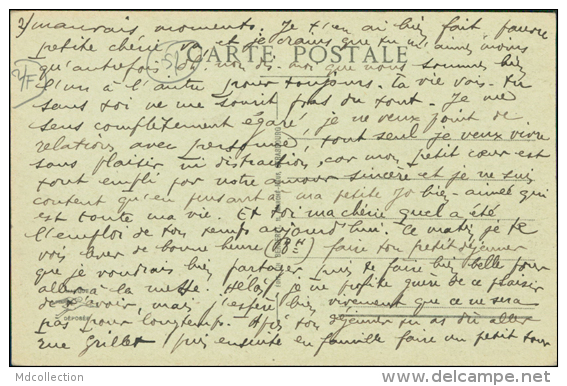 2) mauvais moments. Je t'en ai bien fait pauvre
petite chérie va et je crains que tu m'aimes moins
CARTE POSTALE
qu'autrefois. Dis moi que nous sommes bien
l'un à l'autre pour toujours. La vie vois-tu
sans toi ne me sourit pas du tout. Je me
sens complètement égaré je ne veux point de
relations avec personne, tout seul je veux vivre
sans plaisir ni distraction, car mon petit cœur est
tout empli par notre amour sincère et je ne suis
content qu'en pensant à ma petite Jo bien-aimée qui
est toute ma vie. Et toi ma chérie quel a été
l'emploi de ton temps aujourd'hui. Ce matin je te
vois lever de bonne heure (8H) faire ton petit déjeuner
que je voudrais bien partager puis te faire bien belle pour
aller à la messe. Hélas, je ne profite guère de ce plaisir
de voir, mais j'espère bien vivement que ce ne sera
pas pour longtemps. Après ton déjeuner tu as dû aller
rue Grillet puis ensuite en famille faire un petit tour
DÉPOSÉE
Mdcollection
http://www.delcampe.net